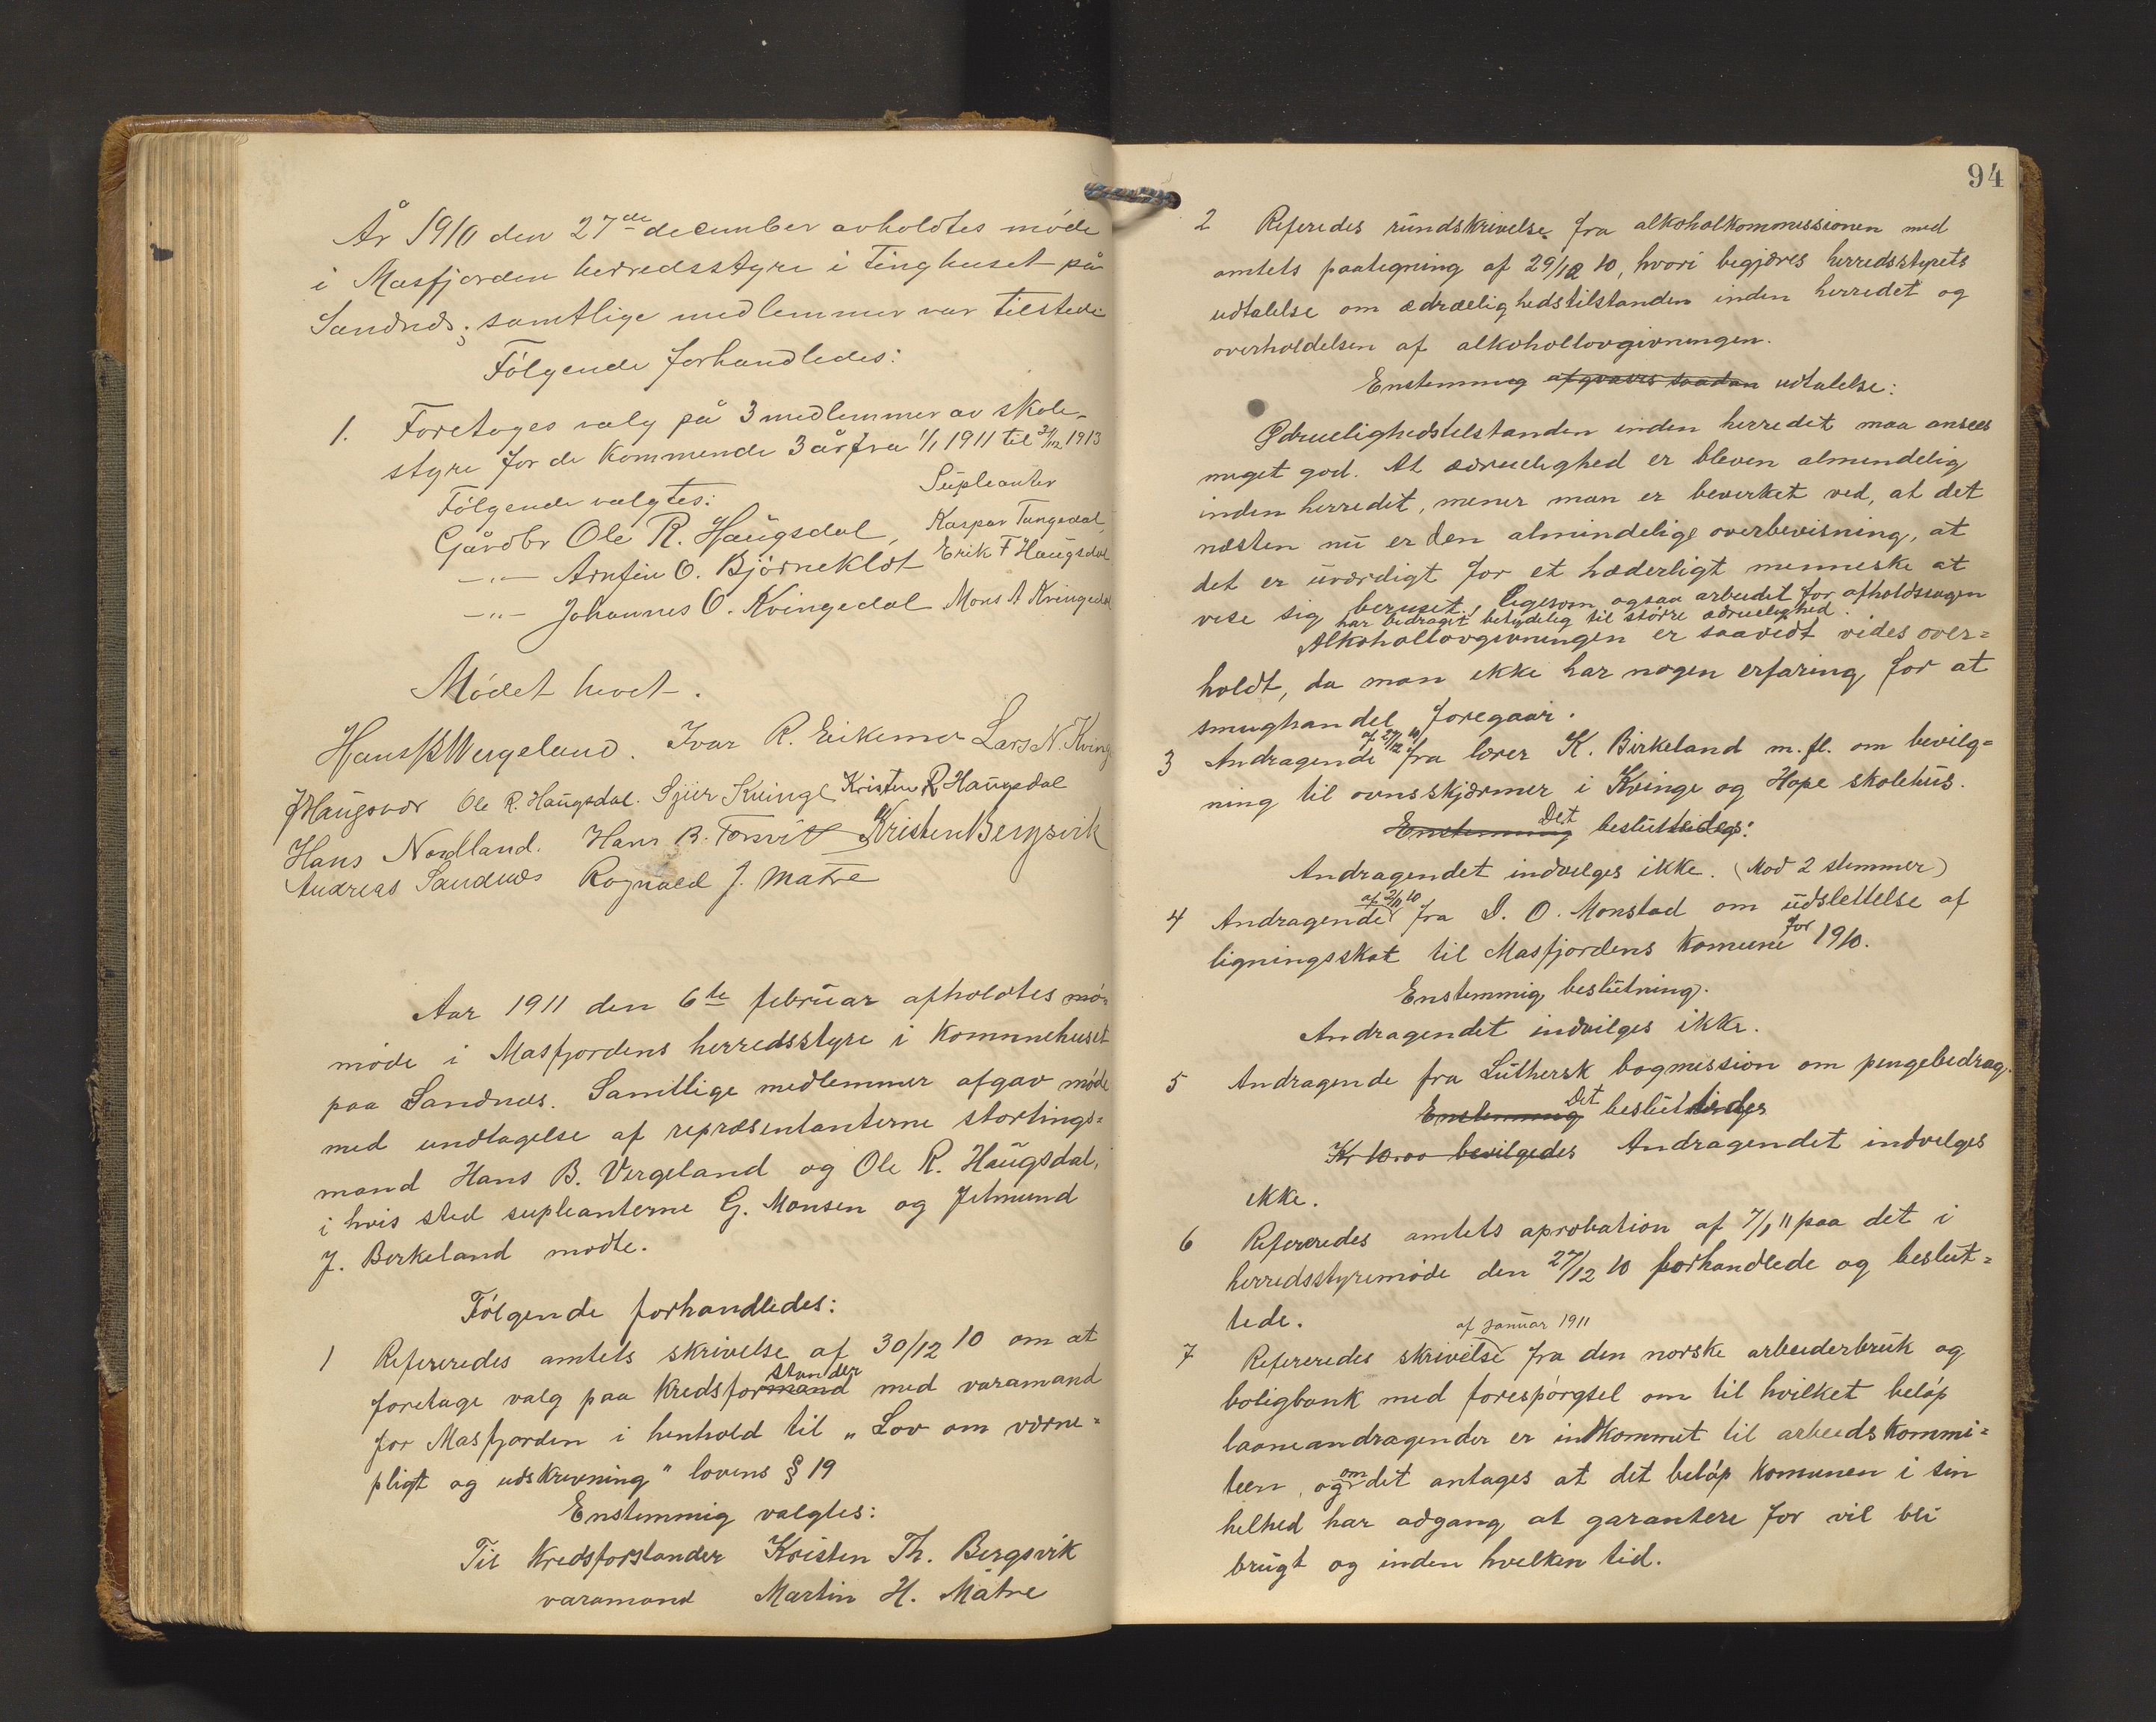 År 1910 den 27de december avholdtes møde
i Masfjorden herredsstyre i Tinghuset på
Sandnæs; samtlige medlemmer var tilstede
Følgende forhandledes:
1. Foretages valg på 3 medlemmer av skole-
styre for de kommende 3 år fra 1/1 1911 til 31/12 1913
Følgende valgtes: Supleanter
Gårdbr Ole R. Haugsdal, Kaspar Tangedal,
-"- Arnfin O. Bjørneklet Erik F Haugsdal
-"- Johannes O. Kvingedal Mons A Kvingedal
Mødet hevet.
Hans B Wergeland. Ivar R. Eikemo Lars N. Kving
Haugsvær Ole R. Haugsdal. Sjur Kvinge Kristen R Haugsdal
Hans Nordland. Hans B. Kristen Bergsvik
Andreas Sandnæs Rognald J. Matre
Aar 1911 den 6te februar afholdtes mø-
møde i Masfjordens herredsstyre i Komunehuset
paa Sandnæs. Samtlige medlemmer afgav møde
med undtagelse af repræsentanterne stortings=
mand Hans B. Vergeland og Ole R. Haugsdal,
i hvis sted supleanterne G. Monsen og Jetmund
J. Berkeland mødte.
Følgende forhandledes:
1 Refereredes amtets skrivelse af 30/12 10 om at
foretage valg paa Kredsformand stander med varamand
for Masfjorden i henhold til „Lov om værne=
pligt og udskrivning" lovens § 19
Enstemmig valgtes:
Til Kredsforstander Kristen Th. Bergsvik
varamand Martin H. Matre
94
2 Referedes rundskrivelse fra alkoholkommissionen med
amtets paategning af 29/12 10, hvori begjæres herredsstyrets
udtalelse om ædruelighedstilstanden inden herredet og
overholdelsen af alkohollovgivningen.
Enstemmig afgaves saadan udtalelse:
Ædruelighedstilstanden inden herredet maa ansees
meget god. At ædruelighed er bleven almindelig
inden herredet, mener man er bevirket ved, at det
næsten nu er den almindelige overbevisning, at
det er uværdigt for et hæderligt menneske at
vise sig beruset, ligesom ogsaa arbeidet for afholdssagen
har bedraget betydelig til større ædruelighed.
Alkohollovgivningen er saavidt vides over=
holdt, da man ikke har nogen erfaring for at
smughandel foregaar.
3 Andragende af 27/12 10 fra lærer K. Birkeland m. fl. om bevilg=
ning til ovnsskjærmer i Kvinge og Hope skolehus.
Enstemmig Det besluttedes:
Andragendet indvilges ikke. (Mod 2 stemmer)
4 Andragende af 2/11 10 fra D. O. Monstad om udslettelse af
ligningsskat til Masfjordens Komune for 1910.
Enstemmig beslutning.
Andragendet indvilges ikke.
5 Andragende fra Luthersk bogmission om pengebedrag.
Enstemmig Det besluttedes
Kr 10.00 bevilgedes Andragendet indvilges
ikke.
6 Refereredes amtets aprobation af 7/1 11 paa det i
herredsstyremøde den 27/12 10 forhandlede og beslut=
tede.
7 Refereredes skrivelse af januar 1911 fra den norske arbeiderbruk og
boligbank med forespørgsel om til hvilket beløp
laaneandragender er indkommet til arbeidskommi=
teen, og om det antages at det beløp Komunen i sin
helhed har adgang at garantere for vil bli
brugt og inden hvilken tid.